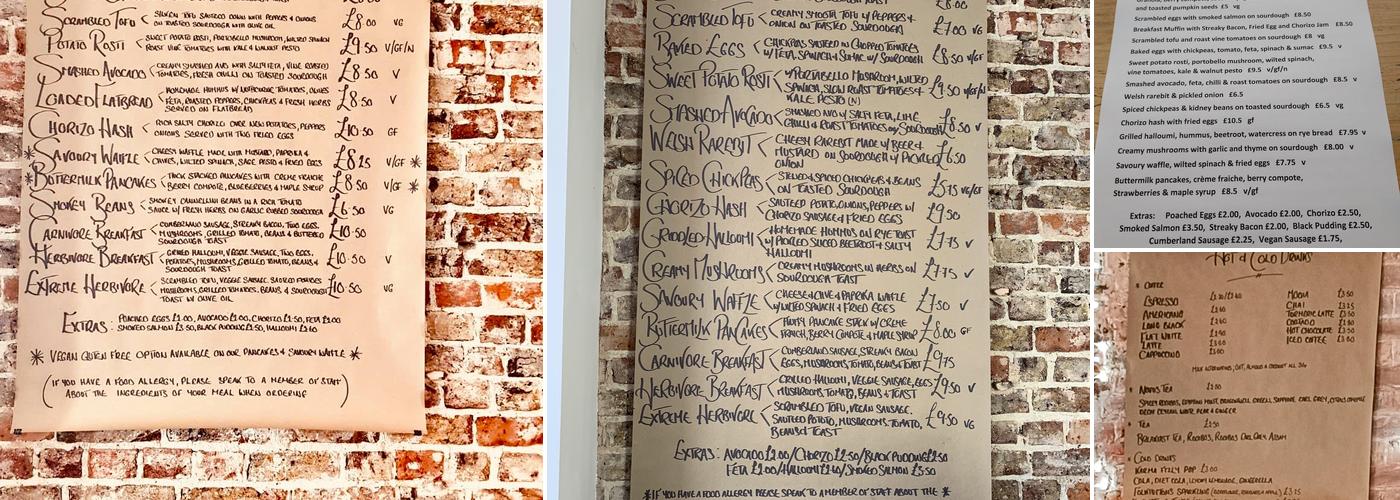 Scrambled Tofu < Silken tofu sauteed down with peppers & onions £8.00 VG
on toasted sourdough with olive oil.
Potato Rosti < Sweet potato rosti, portobello mushroom, wilted spinach £9.50 V/GF/N
roast vine tomatoes with kale & walnut pesto
Smashed Avocado < Creamy smashed avo with salty feta, vine roasted £8.50 V
tomatoes, fresh chilli on toasted sourdough
Loaded Flatbread < Homemade hummus w/ tomatoes, olives £8.50 V
feta, roasted peppers, chickpeas & fresh herbs
served on flatbread
Chorizo Hash < Rich salty chorizo over new potatoes, peppers £10.50 GF
onions served with two fried eggs
* Savoury Waffle < Cheesy waffle made with mustard, paprika & £8.25 V/GF *
chives, wilted spinach, sage pesto & fried eggs
* Buttermilk Pancakes < Thick stacked pancakes with creme fraiche £8.50 V/GF *
berry compote, blueberries & maple syrup
Smokey Beans < Smokey cannellini beans in a rich tomato £6.50 VG
sauce w/ fresh herbs on garlic rubbed sourdough
Carnivore Breakfast < Cumberland sausage, streaky bacon, two eggs, £10.50
mushrooms, grilled tomato, beans & buttered
sourdough toast
Herbivore Breakfast < Grilled halloumi, veggie sausage, two eggs, £10.50 V
potatoes, mushrooms, grilled tomato, beans &
sourdough toast
Extreme Herbivore < Scrambled tofu, veggie sausage, sauteed potatoes £10.50 VG
mushrooms, grilled tomatoes, beans & sourdough
toast w/ olive oil
Extras: Poached eggs £2.00, avocado £2.00, chorizo £2.50, feta £2.00
smoked salmon £3.50, black pudding £2.50, halloumi £2.60
* Vegan gluten free option available on our pancakes & savoury waffle *
(If you have a food allergy, please speak to a member of staff
about the ingredients of your meal when ordering)
£8.00
Scrambled Tofu < Creamy smooth tofu w/ peppers & £7.00 VG
onion on toasted sourdough
Baked Eggs < Chickpeas sauteed in chopped tomatoes £8.50 V/GF
w/ feta, spinach & sumac w/ sourdough
Sweet Potato Rosti < w/ portobello mushroom, wilted £9.50 V/GF/N
spinach, slow roast tomatoes &
kale pesto (N)
Smashed Avocado < Smashed avo w/ salty feta, lime £8.50 V
chilli & roast tomatoes on sourdough
Welsh Rarebit < Cheesy rarebit made w/ beer & £6.50
mustard on sourdough w/ pickled
onion
Spiced Chickpeas < Stewed & spiced chickpeas & beans £5.75 VG/GF
on toasted sourdough
Chorizo Hash < Sauteed potato, onions, peppers w/ £9.50
chorizo sausage & fried eggs
Griddled Halloumi < Homemade hommus on rye toast £7.75 V
w/ pickled sliced beetroot & salty
halloumi
Creamy Mushrooms < Creamy mushrooms w/ herbs on £7.75 V
sourdough toast
Savoury Waffle < Cheese & chive & paprika waffle £7.50 V
w/ wilted spinach & fried eggs
Buttermilk Pancakes < Fluffy pancake stack w/ creme £8.00 GF
fraich, berry compote & maple syrup
Carnivore Breakfast < Cumberland sausage, streaky bacon £9.75
eggs, mushrooms, tomato, beans & toast
Herbivore Breakfast < Grilled halloumi, veggie sausage, eggs £9.50 V
mushrooms, tomato, beans & toast
Extreme Herbivore < Scrambled tofu, vegan sausage, £9.50 VG
sauteed potato, mushrooms, tomato,
beans & toast
Extras: Avocado £2.00/Chorizo £2.50/Black pudding £2.50
Feta £2.00/Halloumi £2.40/Smoked salmon £3.50
*If you have a food allergy please speak to a member of staff about the *
and toasted pumpkin seeds £5 vg
Scrambled eggs with smoked salmon on sourdough £8.50
Breakfast Muffin with Streaky Bacon, Fried Egg and Chorizo Jam £8.50
Scrambled tofu and roast vine tomatoes on sourdough £8 vg
Baked eggs with chickpeas, tomato, feta, spinach & sumac £9.5 v
Sweet potato rosti, portobello mushroom, wilted spinach,
vine tomatoes, kale & walnut pesto £9.5 v/gf/n
Smashed avocado, feta, chilli & roast tomatoes on sourdough £8.5 v
Welsh rarebit & pickled onion £6.5
Spiced chickpeas & kidney beans on toasted sourdough £6.5 vg
Chorizo hash with fried eggs £10.5 gf
Grilled halloumi, hummus, beetroot, watercress on rye bread £7.95 v
Creamy mushrooms with garlic and thyme on sourdough £8.00 v
Savoury waffle, wilted spinach & fried eggs £7.75 v
Buttermilk pancakes, crème fraiche, berry compote,
Strawberries & maple syrup £8.5 v/gf
Extras: Poached Eggs £2.00, Avocado £2.00, Chorizo £2.50,
Smoked Salmon £3.50, Streaky Bacon £2.00, Black Pudding £2.50,
Cumberland Sausage £2.25, Vegan Sausage £1.75,
Hot & Cold Drinks
* Coffee
Espresso Mocha £3.50
Americano Chai
Long Black Turmeric Latte £3.50
Flat White Cortado
Latte Hot Chocolate £3.50
Cappuccino Iced Coffee
* Tea £2.50
Breakfast Tea, Rooibos, Rooibos Earl Grey, Assam
* Cold Drinks
Karma Fizzy Pop £3.00
Cola, Diet Cola, Lemony Lemonade, Gingerella